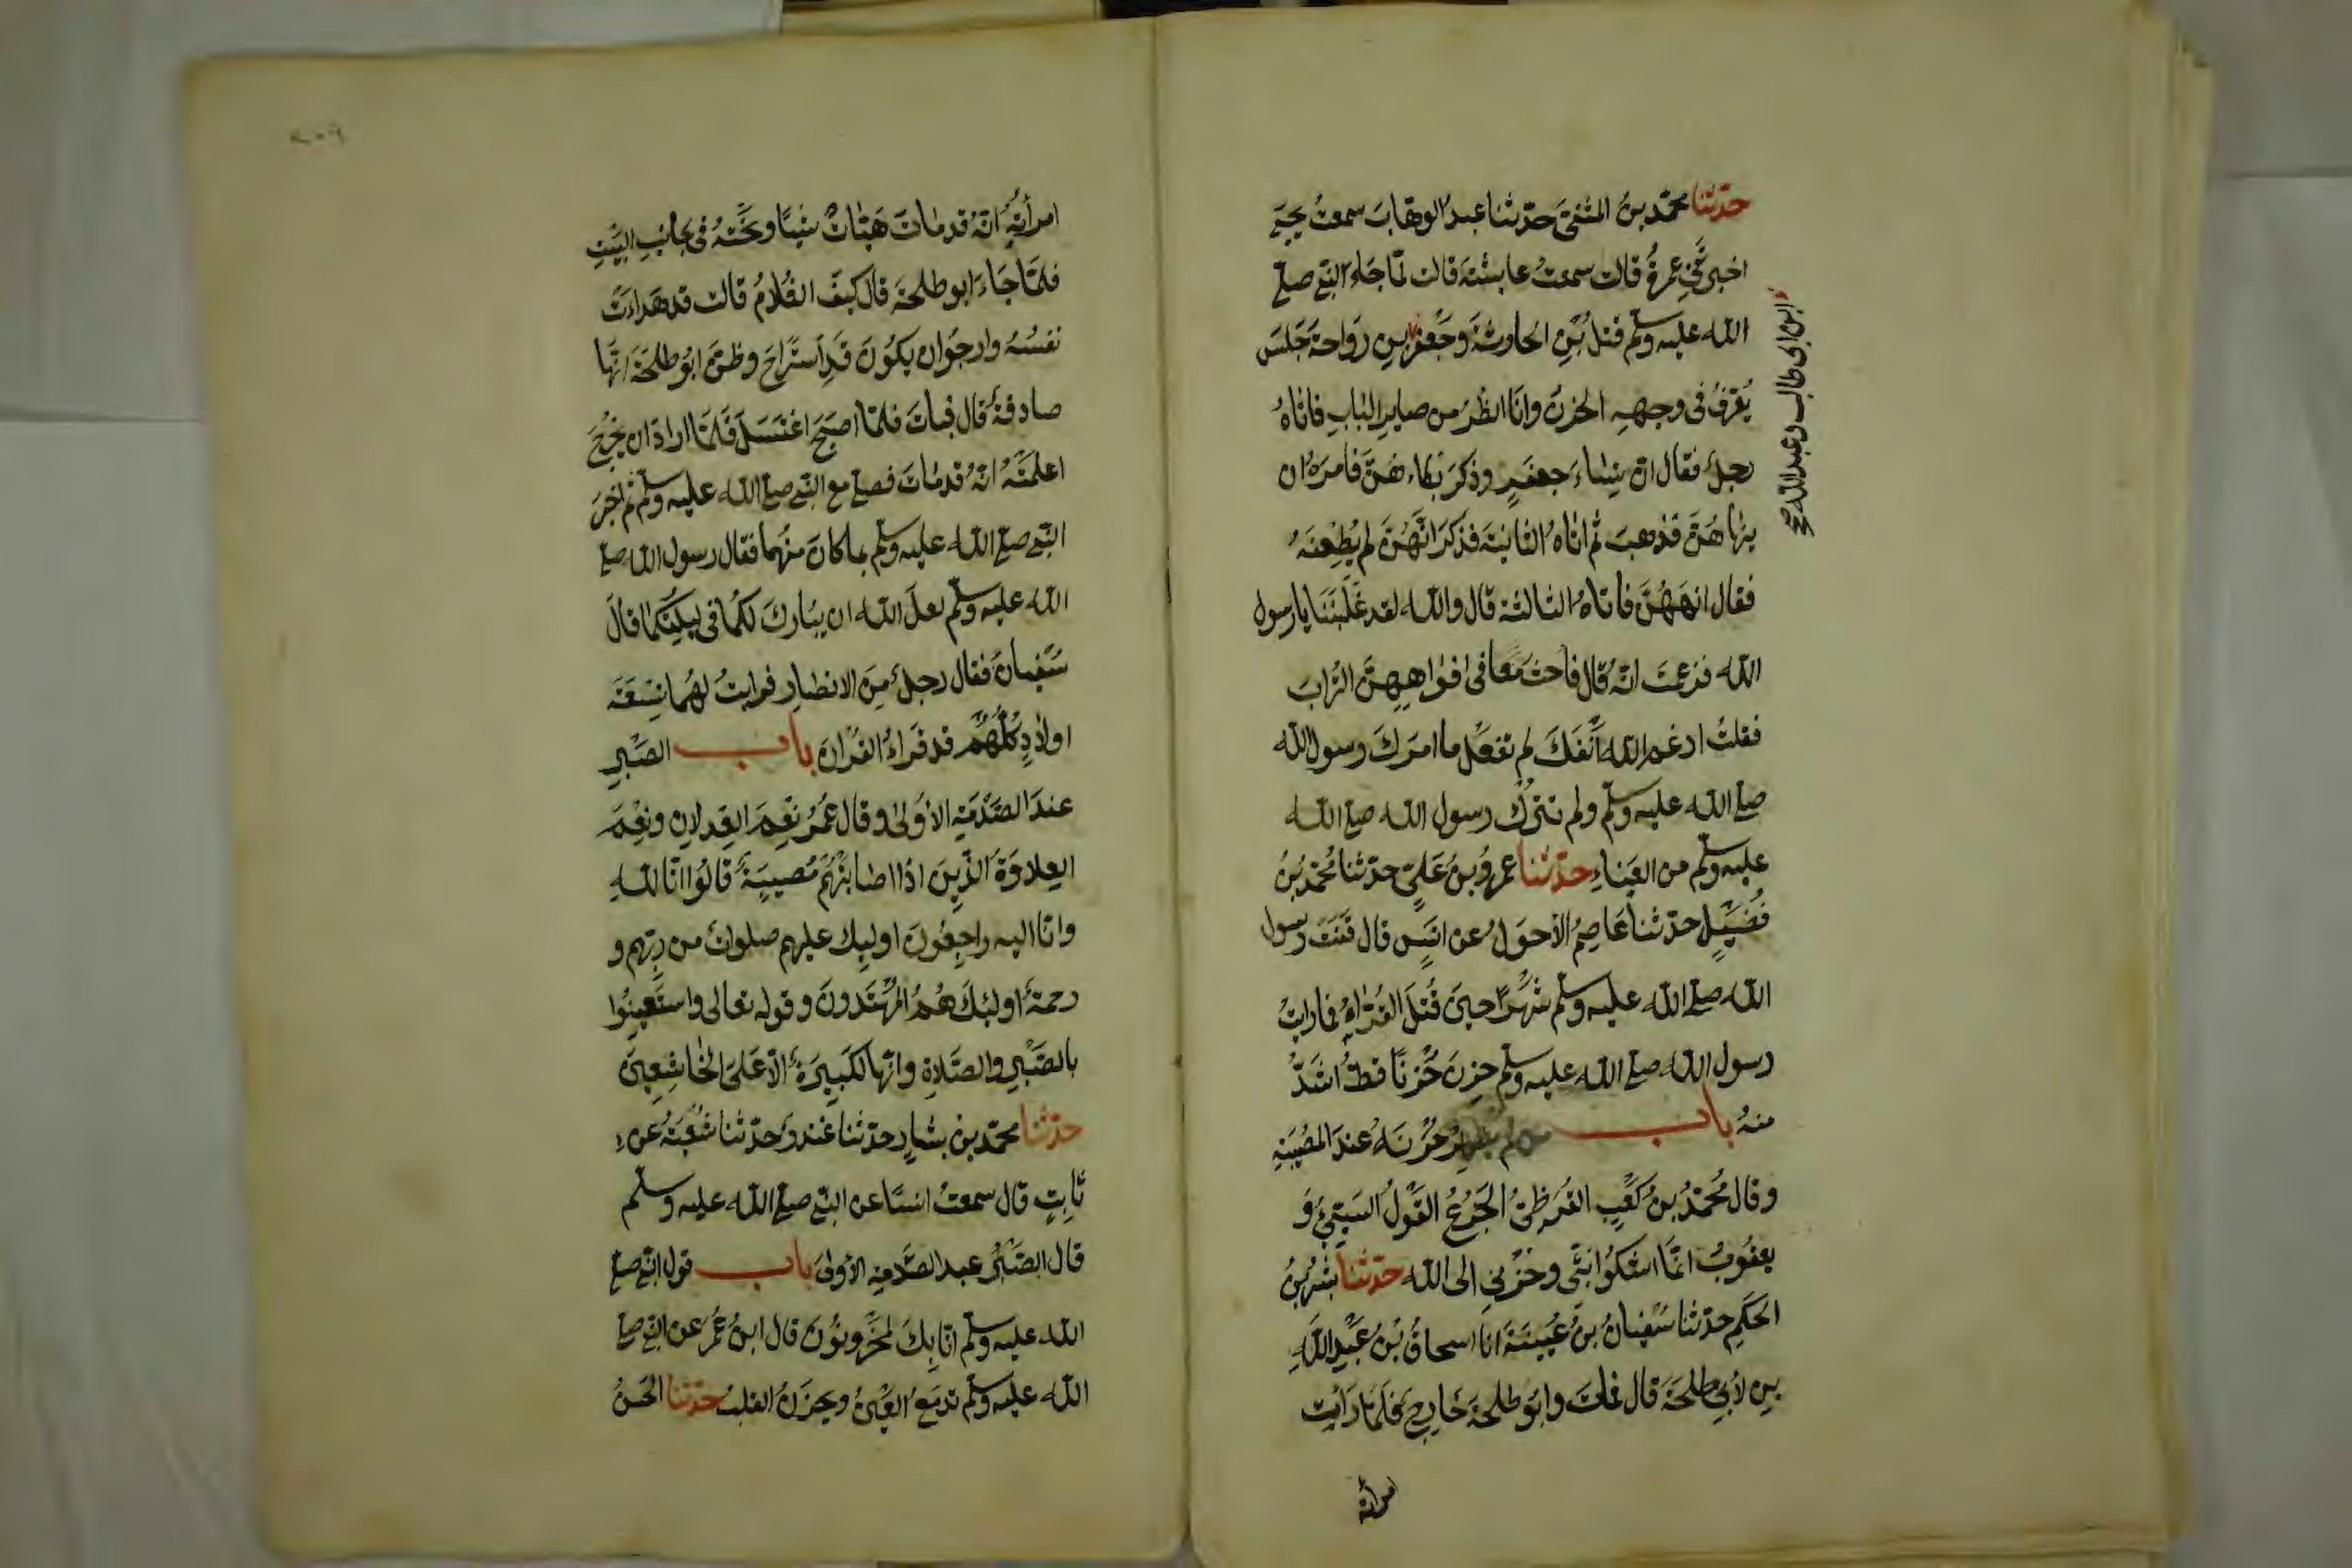 حدّثنا محمّد بنُ المثنى حدّثنا عبدُ الوهّاب سمعتُ يحيى
اخبرتني عمرةُ قالت سمعتُ عايشةَ قالت لمّا جاءَ النبي صلى
الله عليه وسلّم قتلُ بْنِ الحارثةَ وجَعْفرٍ بنِ رَواحةَ جَلَسَ
ابن ابى طالب وعبد الله صح
يُعْرَفُ فى وجههِ الحزنُ وانَا انظُرُ من صايرِ البابِ فاتاهُ
رجلٌ فقال انّ نساءَ جعفرٍ وذكرَ بُكاءهنَّ فامرَهُ ان
ينهاهُنَّ فذهبَ ثم اتاهُ الثانيةَ فذكرَ انّهُنَّ لم يُطِعْنَهُ
فقال انهَهُنَّ فاتاهُ الثالثةَ قال والله لقد غلَبْنَنا يا رسول
الله فزعمت انّهُ قال فاحثُ معا فى افواههنَّ التراب
فقلتُ ارغم الله اَنْفَكَ لم تفعل ما امرَكَ رسول الله
صلى الله عليه وسلّم ولم تترُك رسول الله صلى الله
عليه وسلّم من العَناءِ حدّثنا عمرُو بنُ عَليّ حدّثنا مُحمّدُ بنُ
فُضَيْلٍ حدّثنا عَاصِمُ الأحوَلُ عن انَسٍ قال قنَتَ رسول
الله صلى الله عليه وسلّم شهرًا حينَ قُتِلَ القُرّاءُ فما رايتُ
رسول الله صلى الله عليه وسلّم حزنَ حُزْنًا قطُّ اشدَّ
منهُ باب من لم يظهر حُزْنَهُ عندَ المصيبةِ
وقال مُحمّدُ بنُ كَعْبٍ القُرَظىُّ الجَزَعُ القَوْلُ السَيّئُ وَ
يعقُوبُ انّمَا اشكُوا بثّى وحُزْنِى الى الله حدّثنا بشرُ بنُ
الحَكَمِ حدّثنا سُفيانُ بنُ عُيينَةَ انا اسحاقُ بْنُ عَبْدِ اللهِ
بنِ لأبى طلحَةَ قال فماتَ وابُو طلحةَ خارجٌ فلمّا رَأتِ
امرأته
٢٠٩
امرأتُهُ انّهُ قد ماتَ هيّأتْ شيئًا ونحّتهُ فى جانبِ البيتِ
فلمّا جَاءَ ابو طلحةَ قال كيفَ الغُلامُ قالت قد هَدَاءَت
نفسُهُ وارجُو ان يكُونَ قدِ استَراحَ وظنّ ابُو طلحَةَ انّها
صادقةٌ قال فباتَ فلمّا اصبحَ اغتسَلَ فَلمّا ارادَ ان يخرُجَ
اعلمتْهُ انّهُ قد ماتَ فصلى مع النبي صلى الله عليه وسلّم ثم اخبَرَ
النبي صلى الله عليه وسلّم بما كانَ منهُما فقال رسول الله صلى
الله عليه وسلّم لعلّ الله ان يبُاركَ لكُما فى ليلتِكُما قالَ
سُفيانُ فقال رجلٌ مِنَ الانصارِ فرايتُ لهُما تسِعَةَ
اولادٍ كُلُّهُمْ قد قَراءُ القُرآنَ باب الصَبْرِ
عندَ الصَدْمَةِ الأُولى وقال عُمرُ نِعْمَ العِدلانِ ونِعْمَ
العِلاوَةُ الّذينَ اذا اصابتْهُمْ مُصيبَةٌ قالُوا انّا للهِ
وانّا اليه راجِعُونَ اوليِك عليهم صلواتٌ من ربّهم و
رحمةٌ اولئكَ هُمُ المُهْتَدونَ وقوله تعالى واستعِينُوا
بالصَبْرِ والصَلاةِ وانّها لكَبيرَةٌ الّا عَلى الخاشِعِينَ
حدّثنا محمّد بن بشارٍ حدّثنا غندرٌ حدّثنا شُعْبَةُ عن
ثابتٍ قال سمعتُ انسًا عن النبي صلى الله عليه وسلّم
قال الصَبْرُ عند الصَدمةِ الأولى باب قول النبي صلى
الله عليه وسلّم انّا بِكَ لمحْزُونُونَ قال ابنُ عُمرَ عن النبي صلى
الله عليه وسلّم تدمَعُ العَيْنُ ويحزَنُ القلبُ حدّثنا الحسَنُ